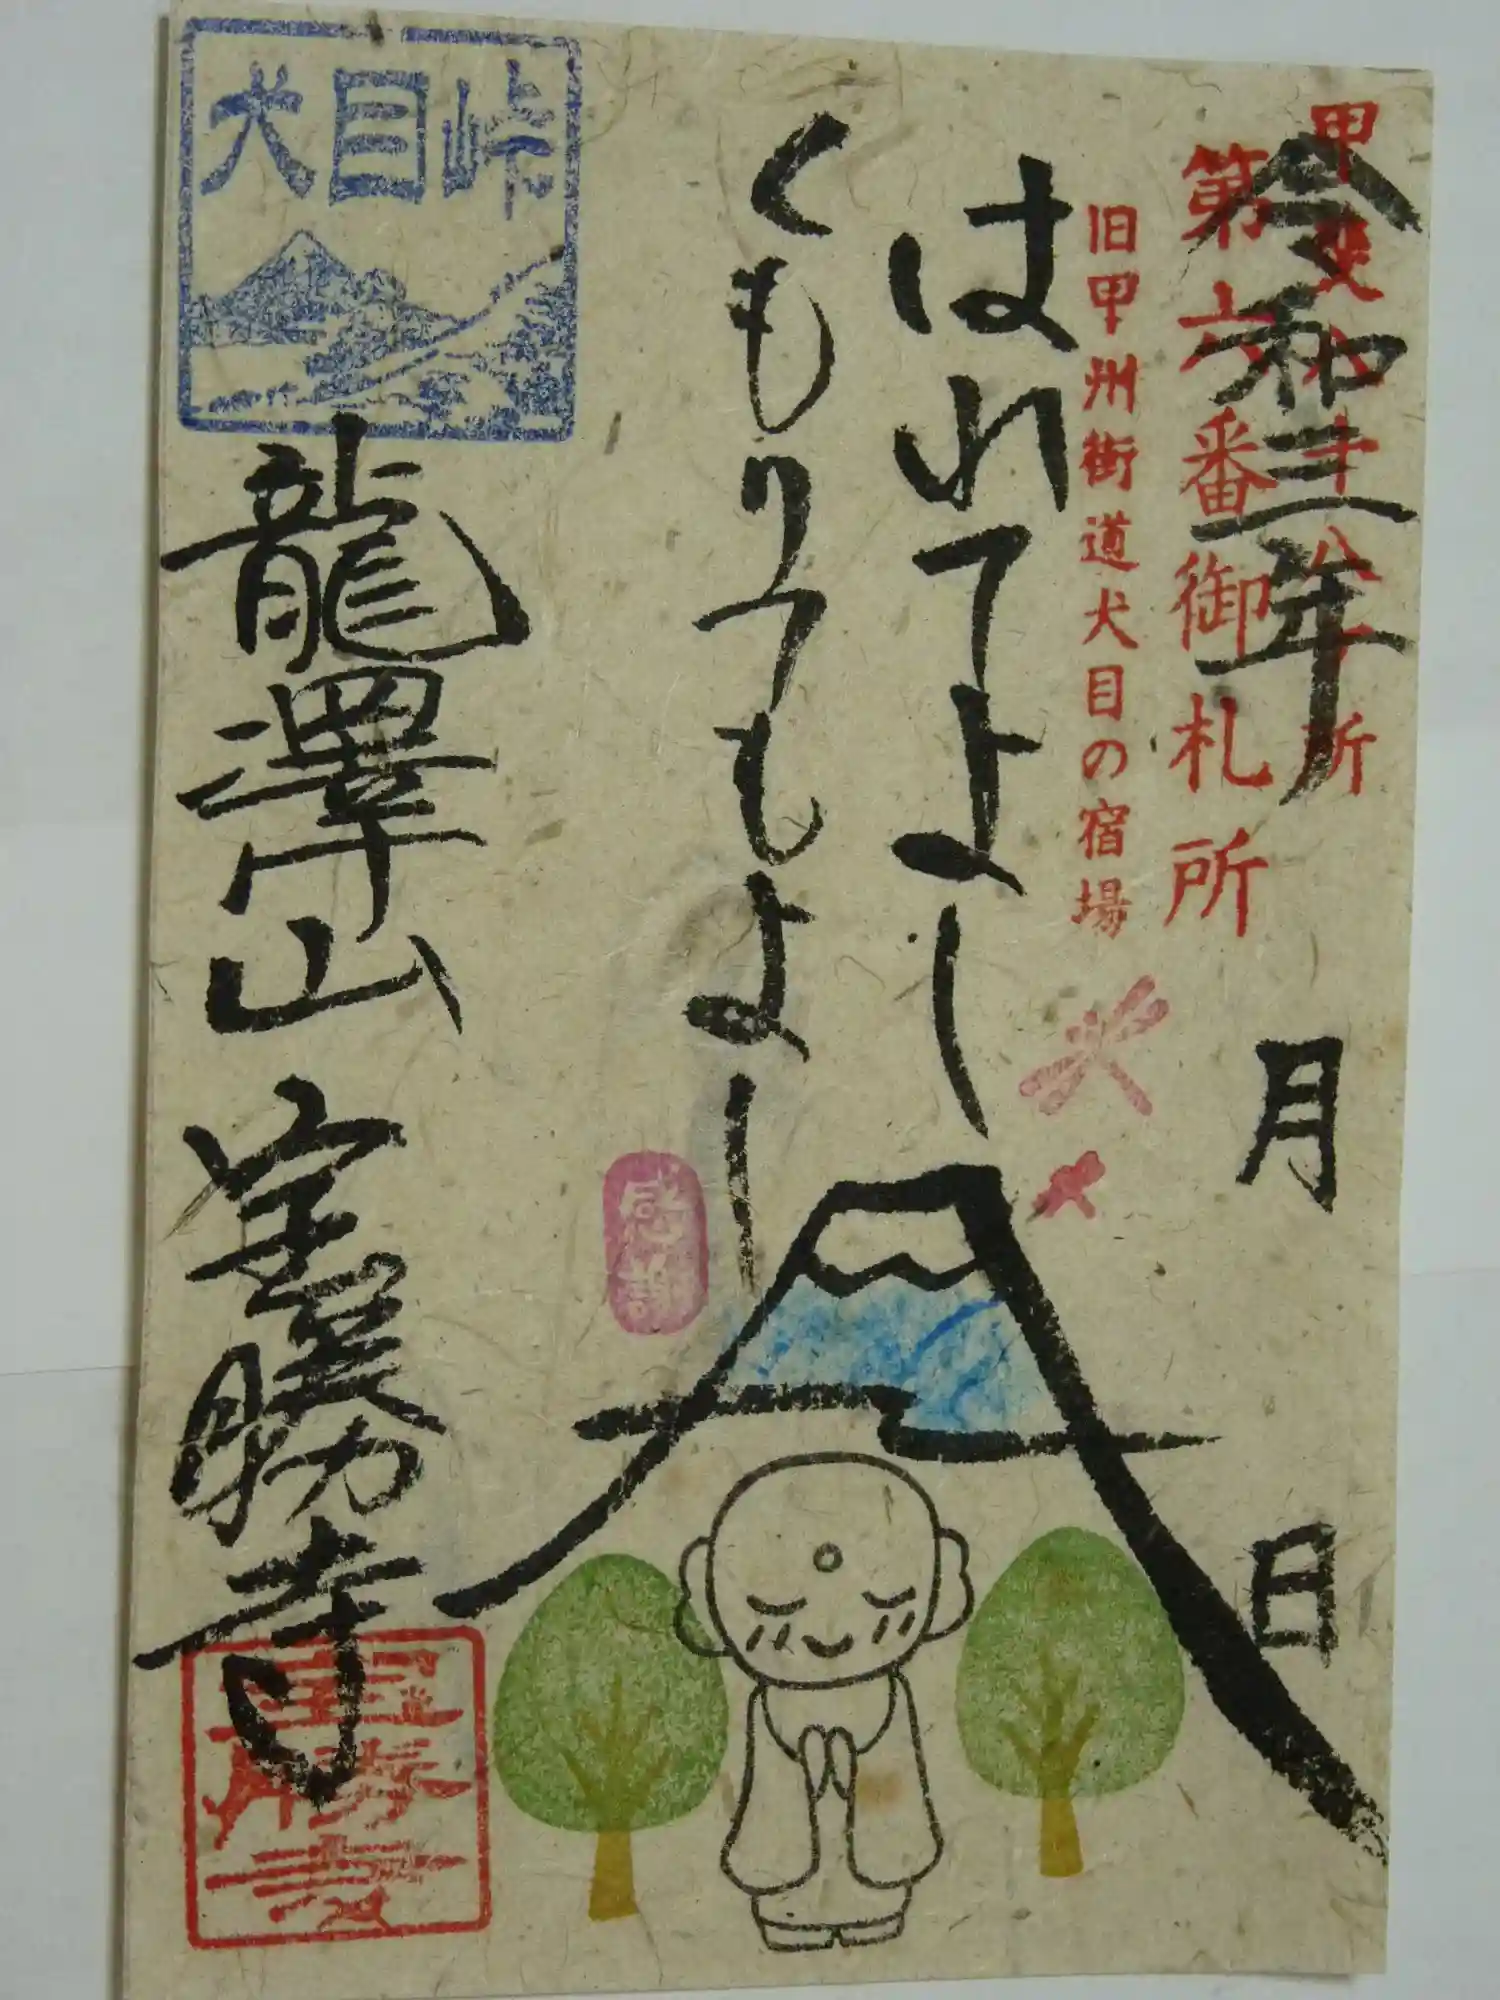 甲斐八十八ヶ所
令和三年 月 日
第六番御札所
旧甲州街道犬目の宿場
はれてよし
くもりてもよし
感謝
犬目峠
龍澤山 宝勝寺